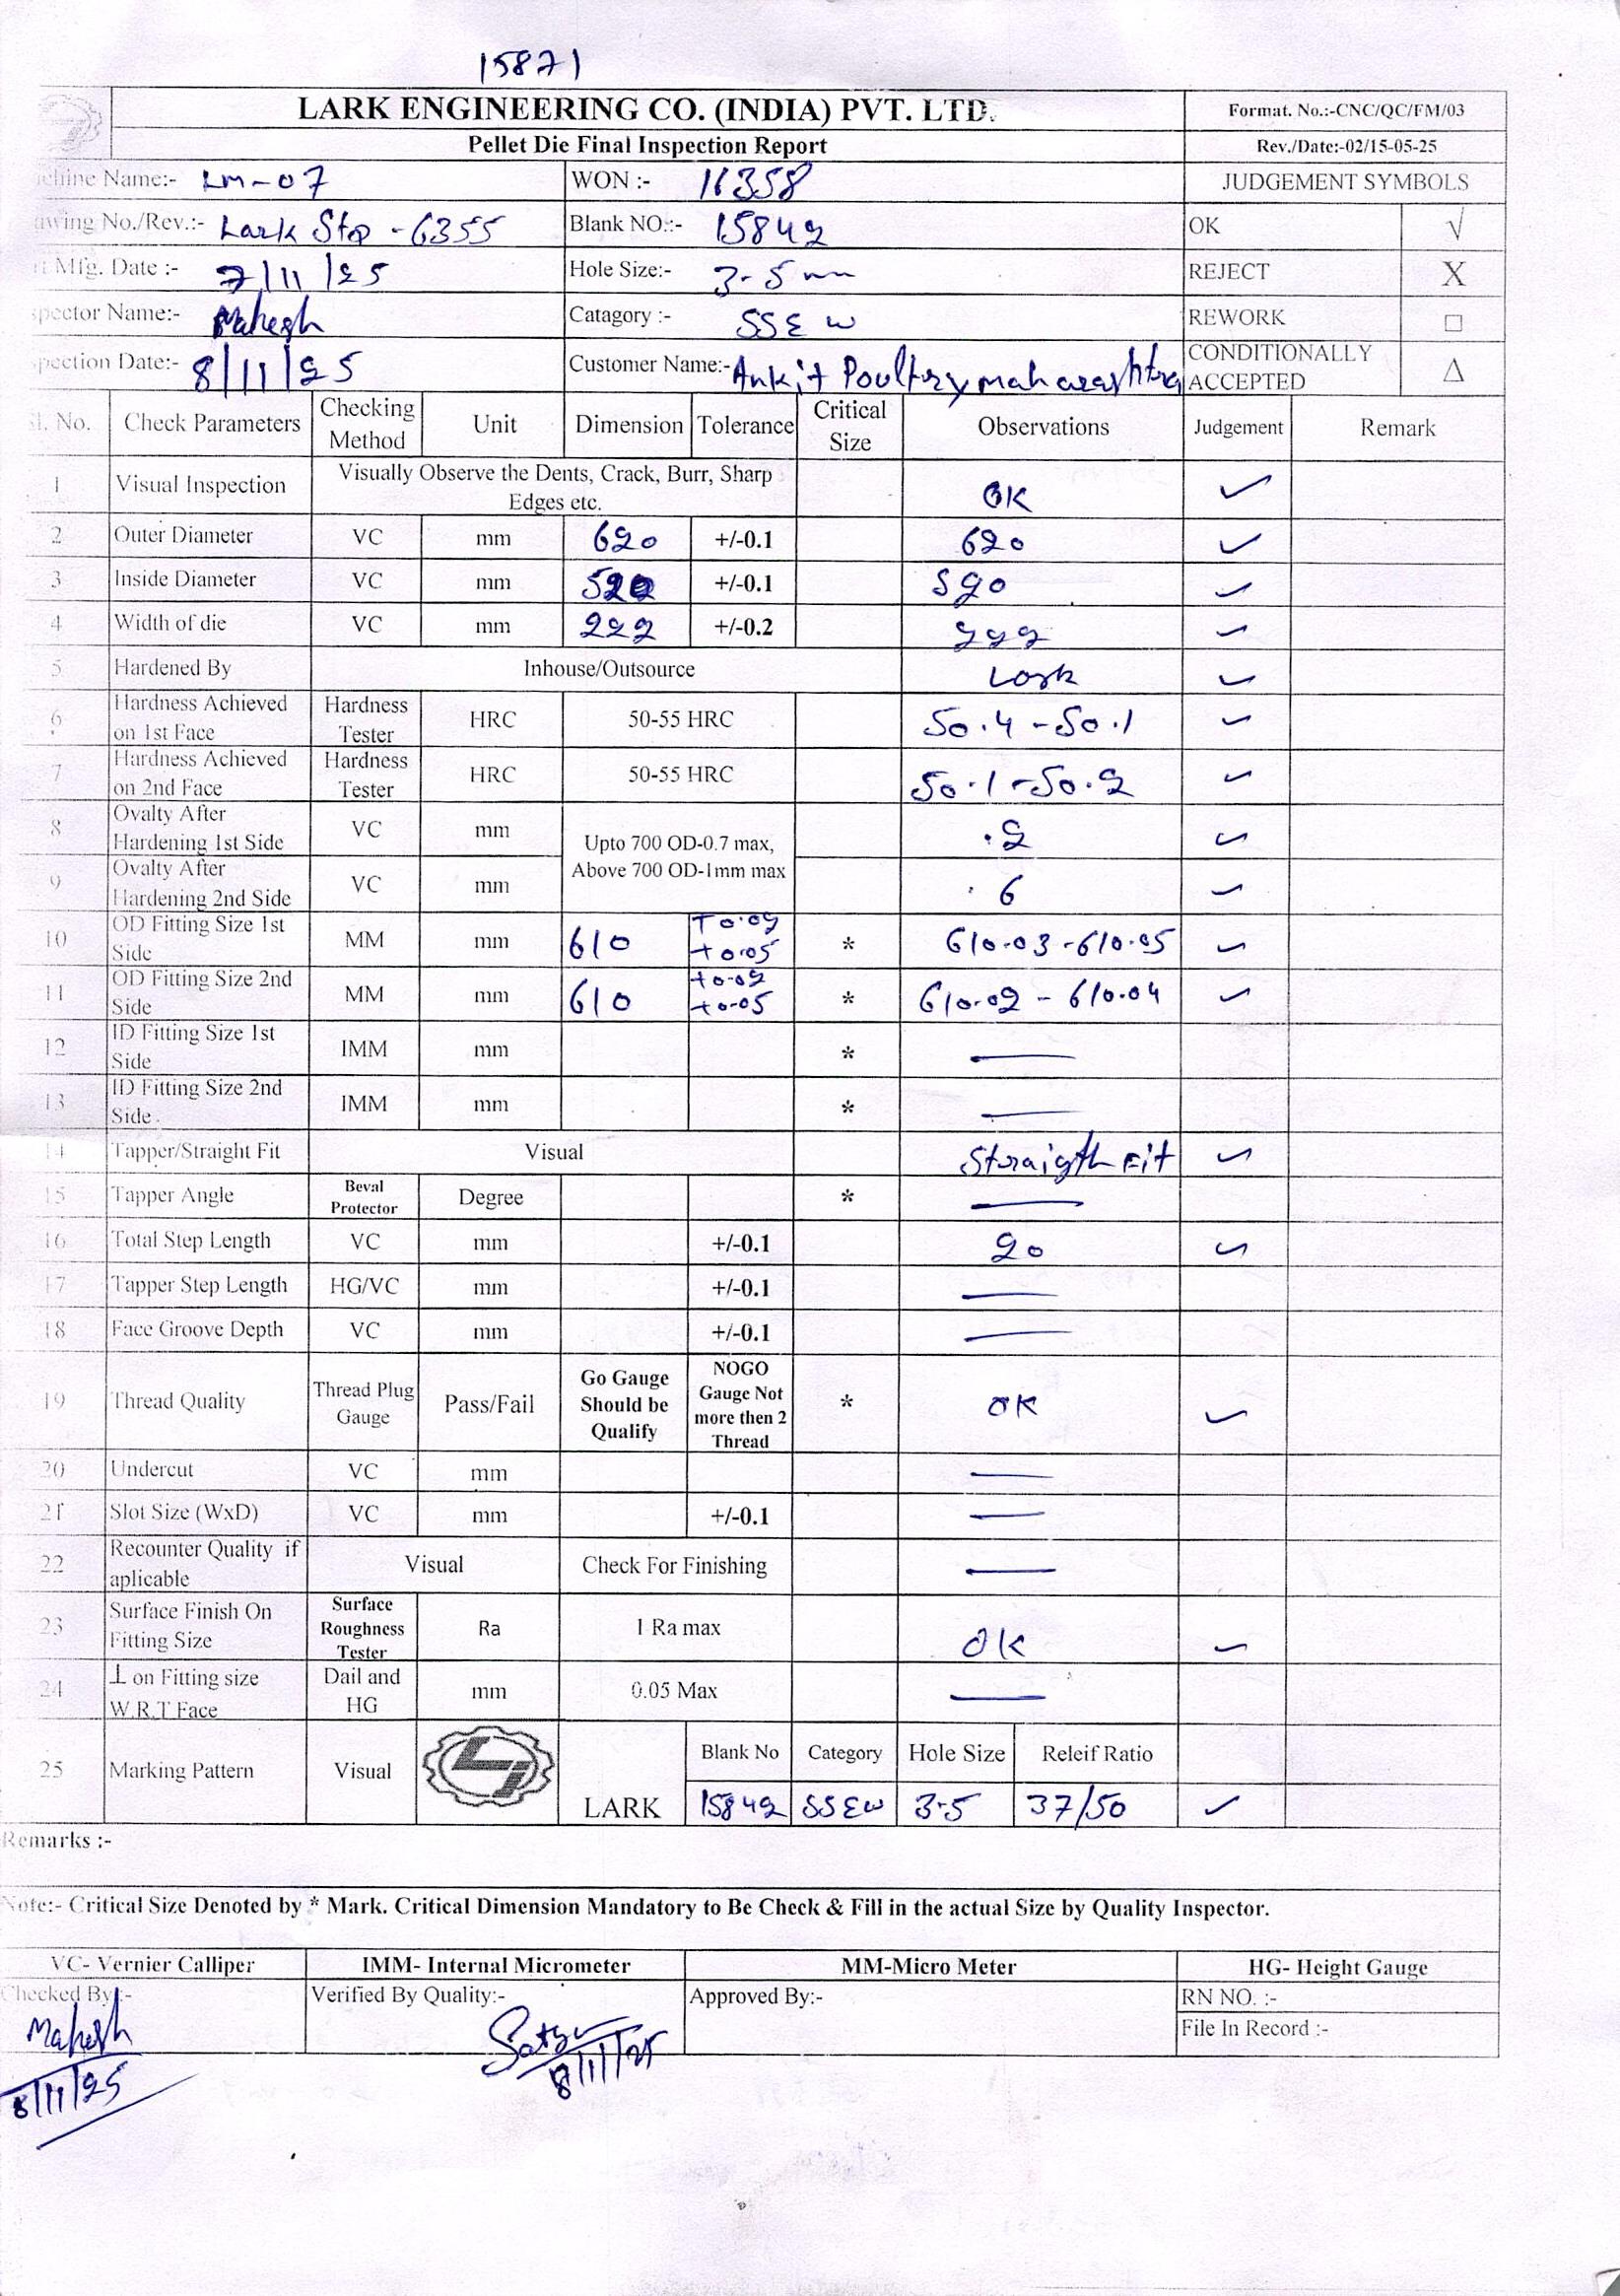 15871
LARK ENGINEERING CO. (INDIA) PVT. LTD. Format. No.:-CNC/QC/FM/03
Pellet Die Final Inspection Report Rev./Date:-02/15-05-25
chine Name:- LM-07 WON :- 16358 JUDGEMENT SYMBOLS
awing No./Rev.:- Lark Stop - 6355 Blank NO:- 15842 OK √
Mfg. Date :- 7/11/25 Hole Size:- 3-5 mm REJECT X
spector Name:- Mahesh Catagory :- SSEW REWORK □
pection Date:- 8/11/25 Customer Name:- Ankit Poultry maharashtra CONDITIONALLY ACCEPTED △
Sl. No. Check Parameters Checking Method Unit Dimension Tolerance Critical Size Observations Judgement Remark
1 Visual Inspection Visually Observe the Dents, Crack, Burr, Sharp Edges etc. OK ✓
2 Outer Diameter VC mm 620 +/-0.1 620 ✓
3 Inside Diameter VC mm 520 +/-0.1 520 ✓
4 Width of die VC mm 222 +/-0.2 222 ✓
5 Hardened By Inhouse/Outsource Lark ✓
6 Hardness Achieved on 1st Face Hardness Tester HRC 50-55 HRC 50.4 - 50.1 ✓
7 Hardness Achieved on 2nd Face Hardness Tester HRC 50-55 HRC 50.1 - 50.2 ✓
8 Ovalty After Hardening 1st Side VC mm Upto 700 OD-0.7 max, Above 700 OD-1mm max .2 ✓
9 Ovalty After Hardening 2nd Side VC mm .6 ✓
10 OD Fitting Size 1st Side MM mm 610 +0.02 +0.05 * 610.03 - 610.05 ✓
11 OD Fitting Size 2nd Side MM mm 610 +0.02 +0.05 * 610.02 - 610.04 ✓
12 ID Fitting Size 1st Side IMM mm * —
13 ID Fitting Size 2nd Side IMM mm * —
14 Tapper/Straight Fit Visual Straigth Fit ✓
15 Tapper Angle Beval Protector Degree * —
16 Total Step Length VC mm +/-0.1 20 ✓
17 Tapper Step Length HG/VC mm +/-0.1 —
18 Face Groove Depth VC mm +/-0.1 —
19 Thread Quality Thread Plug Gauge Pass/Fail Go Gauge Should be Qualify NOGO Gauge Not more then 2 Thread * OK ✓
20 Undercut VC mm —
21 Slot Size (WxD) VC mm +/-0.1 —
22 Recounter Quality if aplicable Visual Check For Finishing —
23 Surface Finish On Fitting Size Surface Roughness Tester Ra 1 Ra max OK ✓
24 ⊥ on Fitting size W.R.T Face Dail and HG mm 0.05 Max —
25 Marking Pattern Visual LARK Blank No Category Hole Size Releif Ratio
15842 SSEW 3-5 37/50 ✓
Remarks :-
Note:- Critical Size Denoted by * Mark. Critical Dimension Mandatory to Be Check & Fill in the actual Size by Quality Inspector.
VC- Vernier Calliper IMM- Internal Micrometer MM-Micro Meter HG- Height Gauge
Checked By:- Verified By Quality:- Approved By:- RN NO. :-
File In Record :-
Mahesh
8/11/25 8/11/25